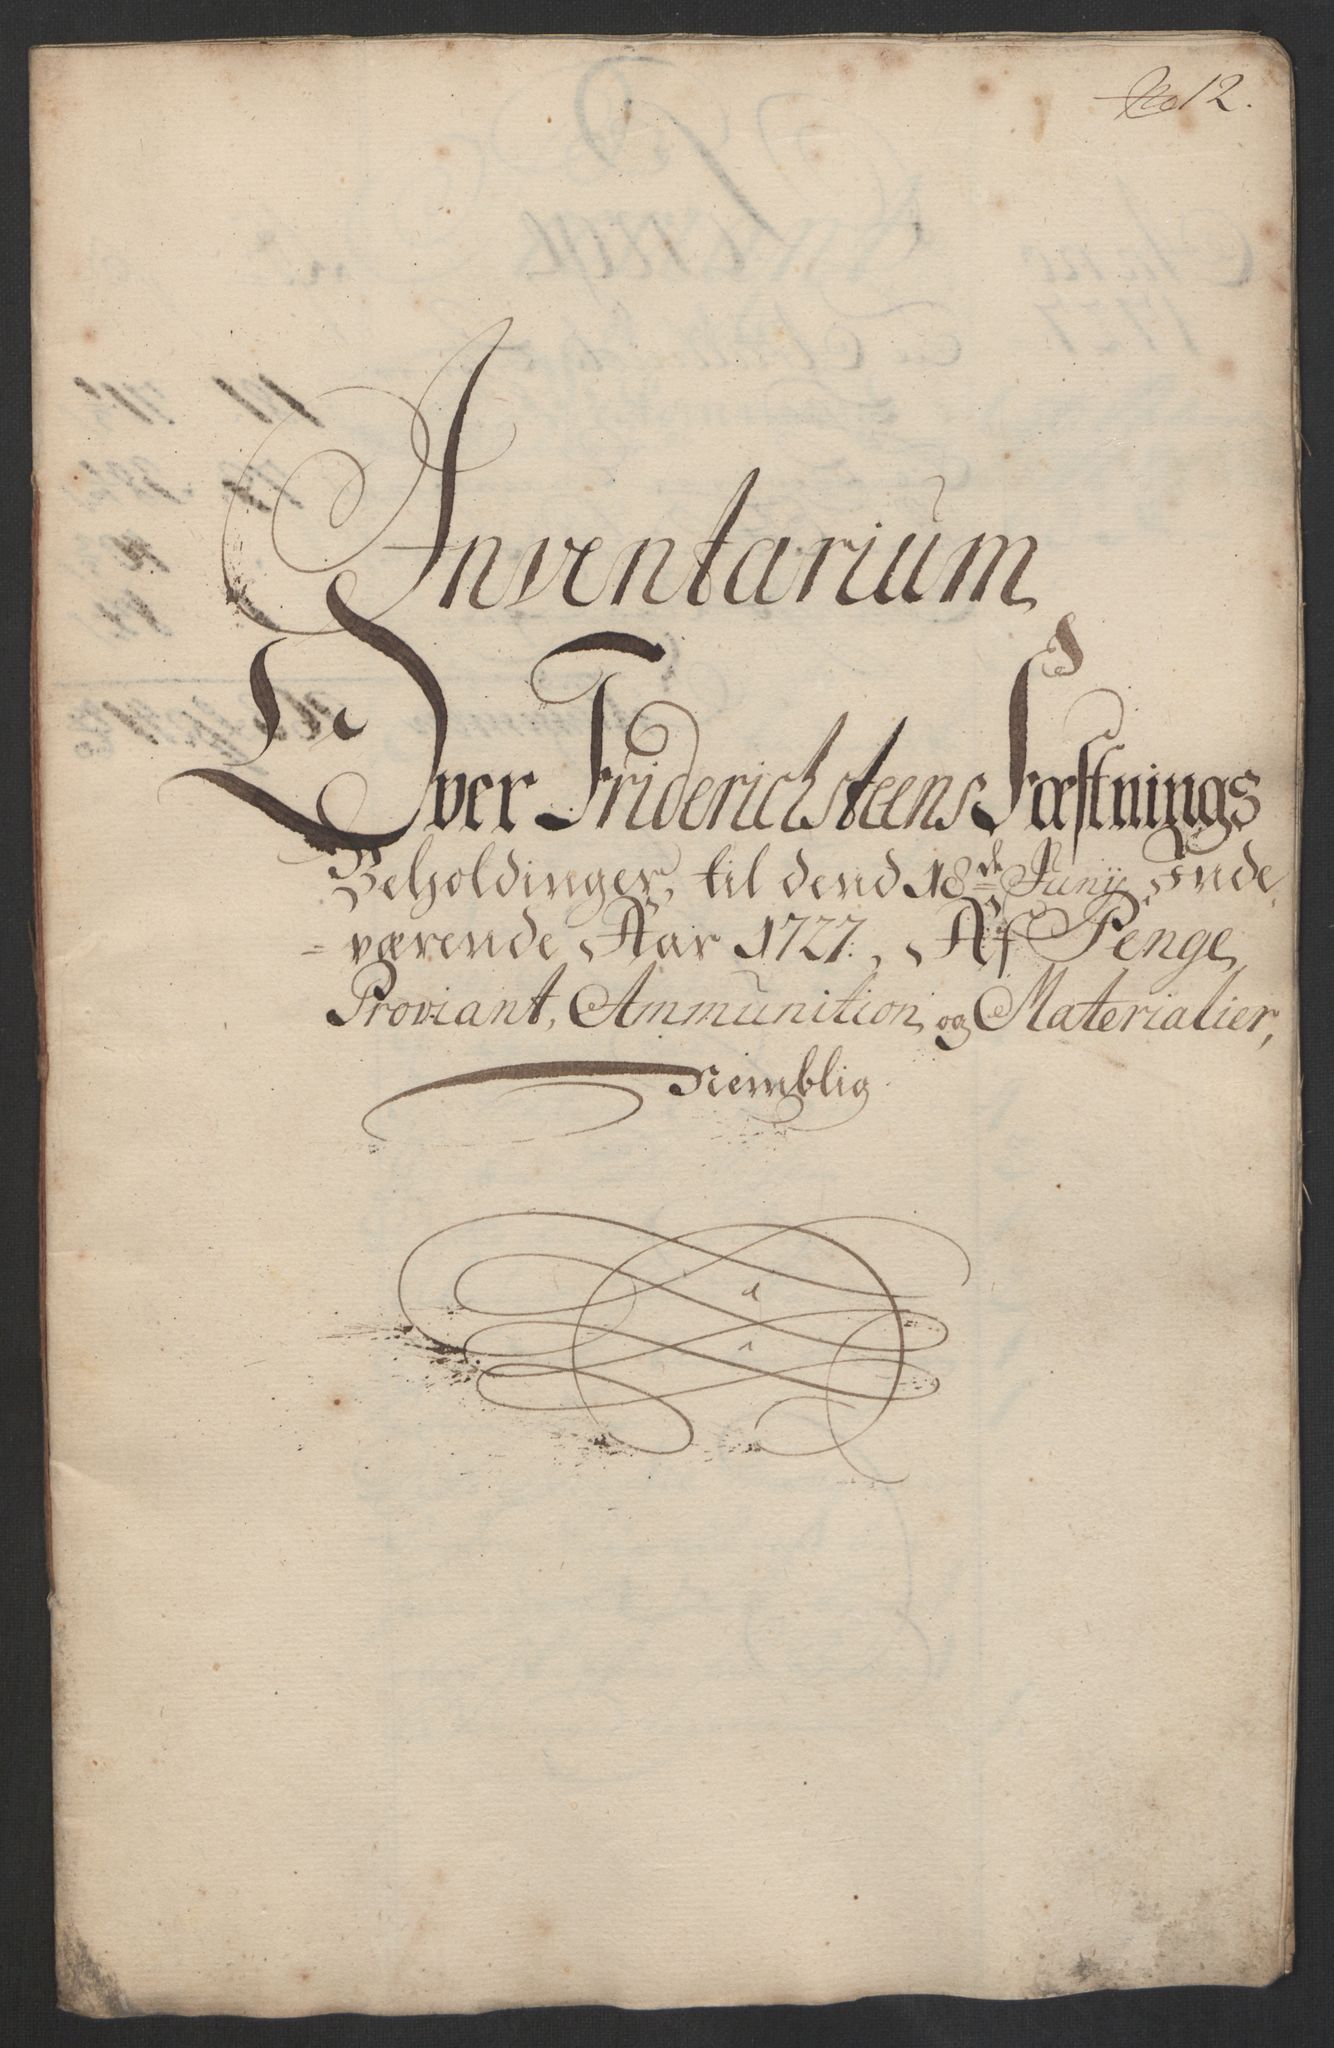 No 12.
Inventarium
Over Friderichsteens Fæstnings
Beholdinger, til dend 18de Junÿ Inde
værende Aar 1727. Af Penge,
Proviant, Ammunition, og Materialier,
Nemblig